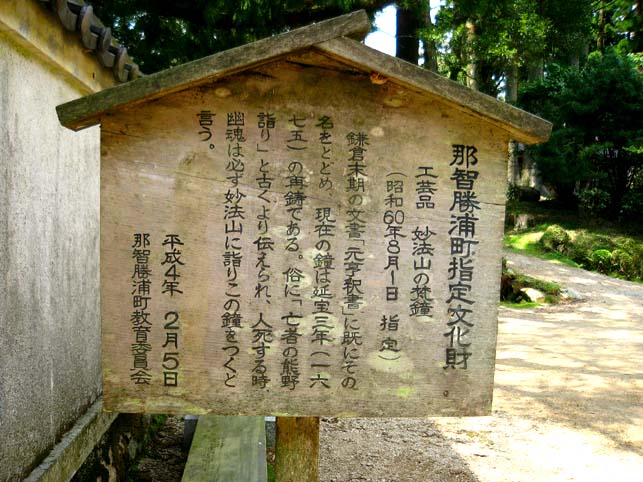 那智勝浦町指定文化財
工芸品 妙法山の梵鐘
(昭和60年8月1日 指定)
鎌倉末期の文書「元亨釈書」に既にその
名をとどめ、現在の鐘は延宝三年(一六
七五)の再鋳である。俗に「亡者の熊野
詣り」と古くより伝えられ、人死する時、
幽魂は必ず妙法山に詣りこの鐘をつくと
言う。
平成4年 2月5日
那智勝浦町教育委員会